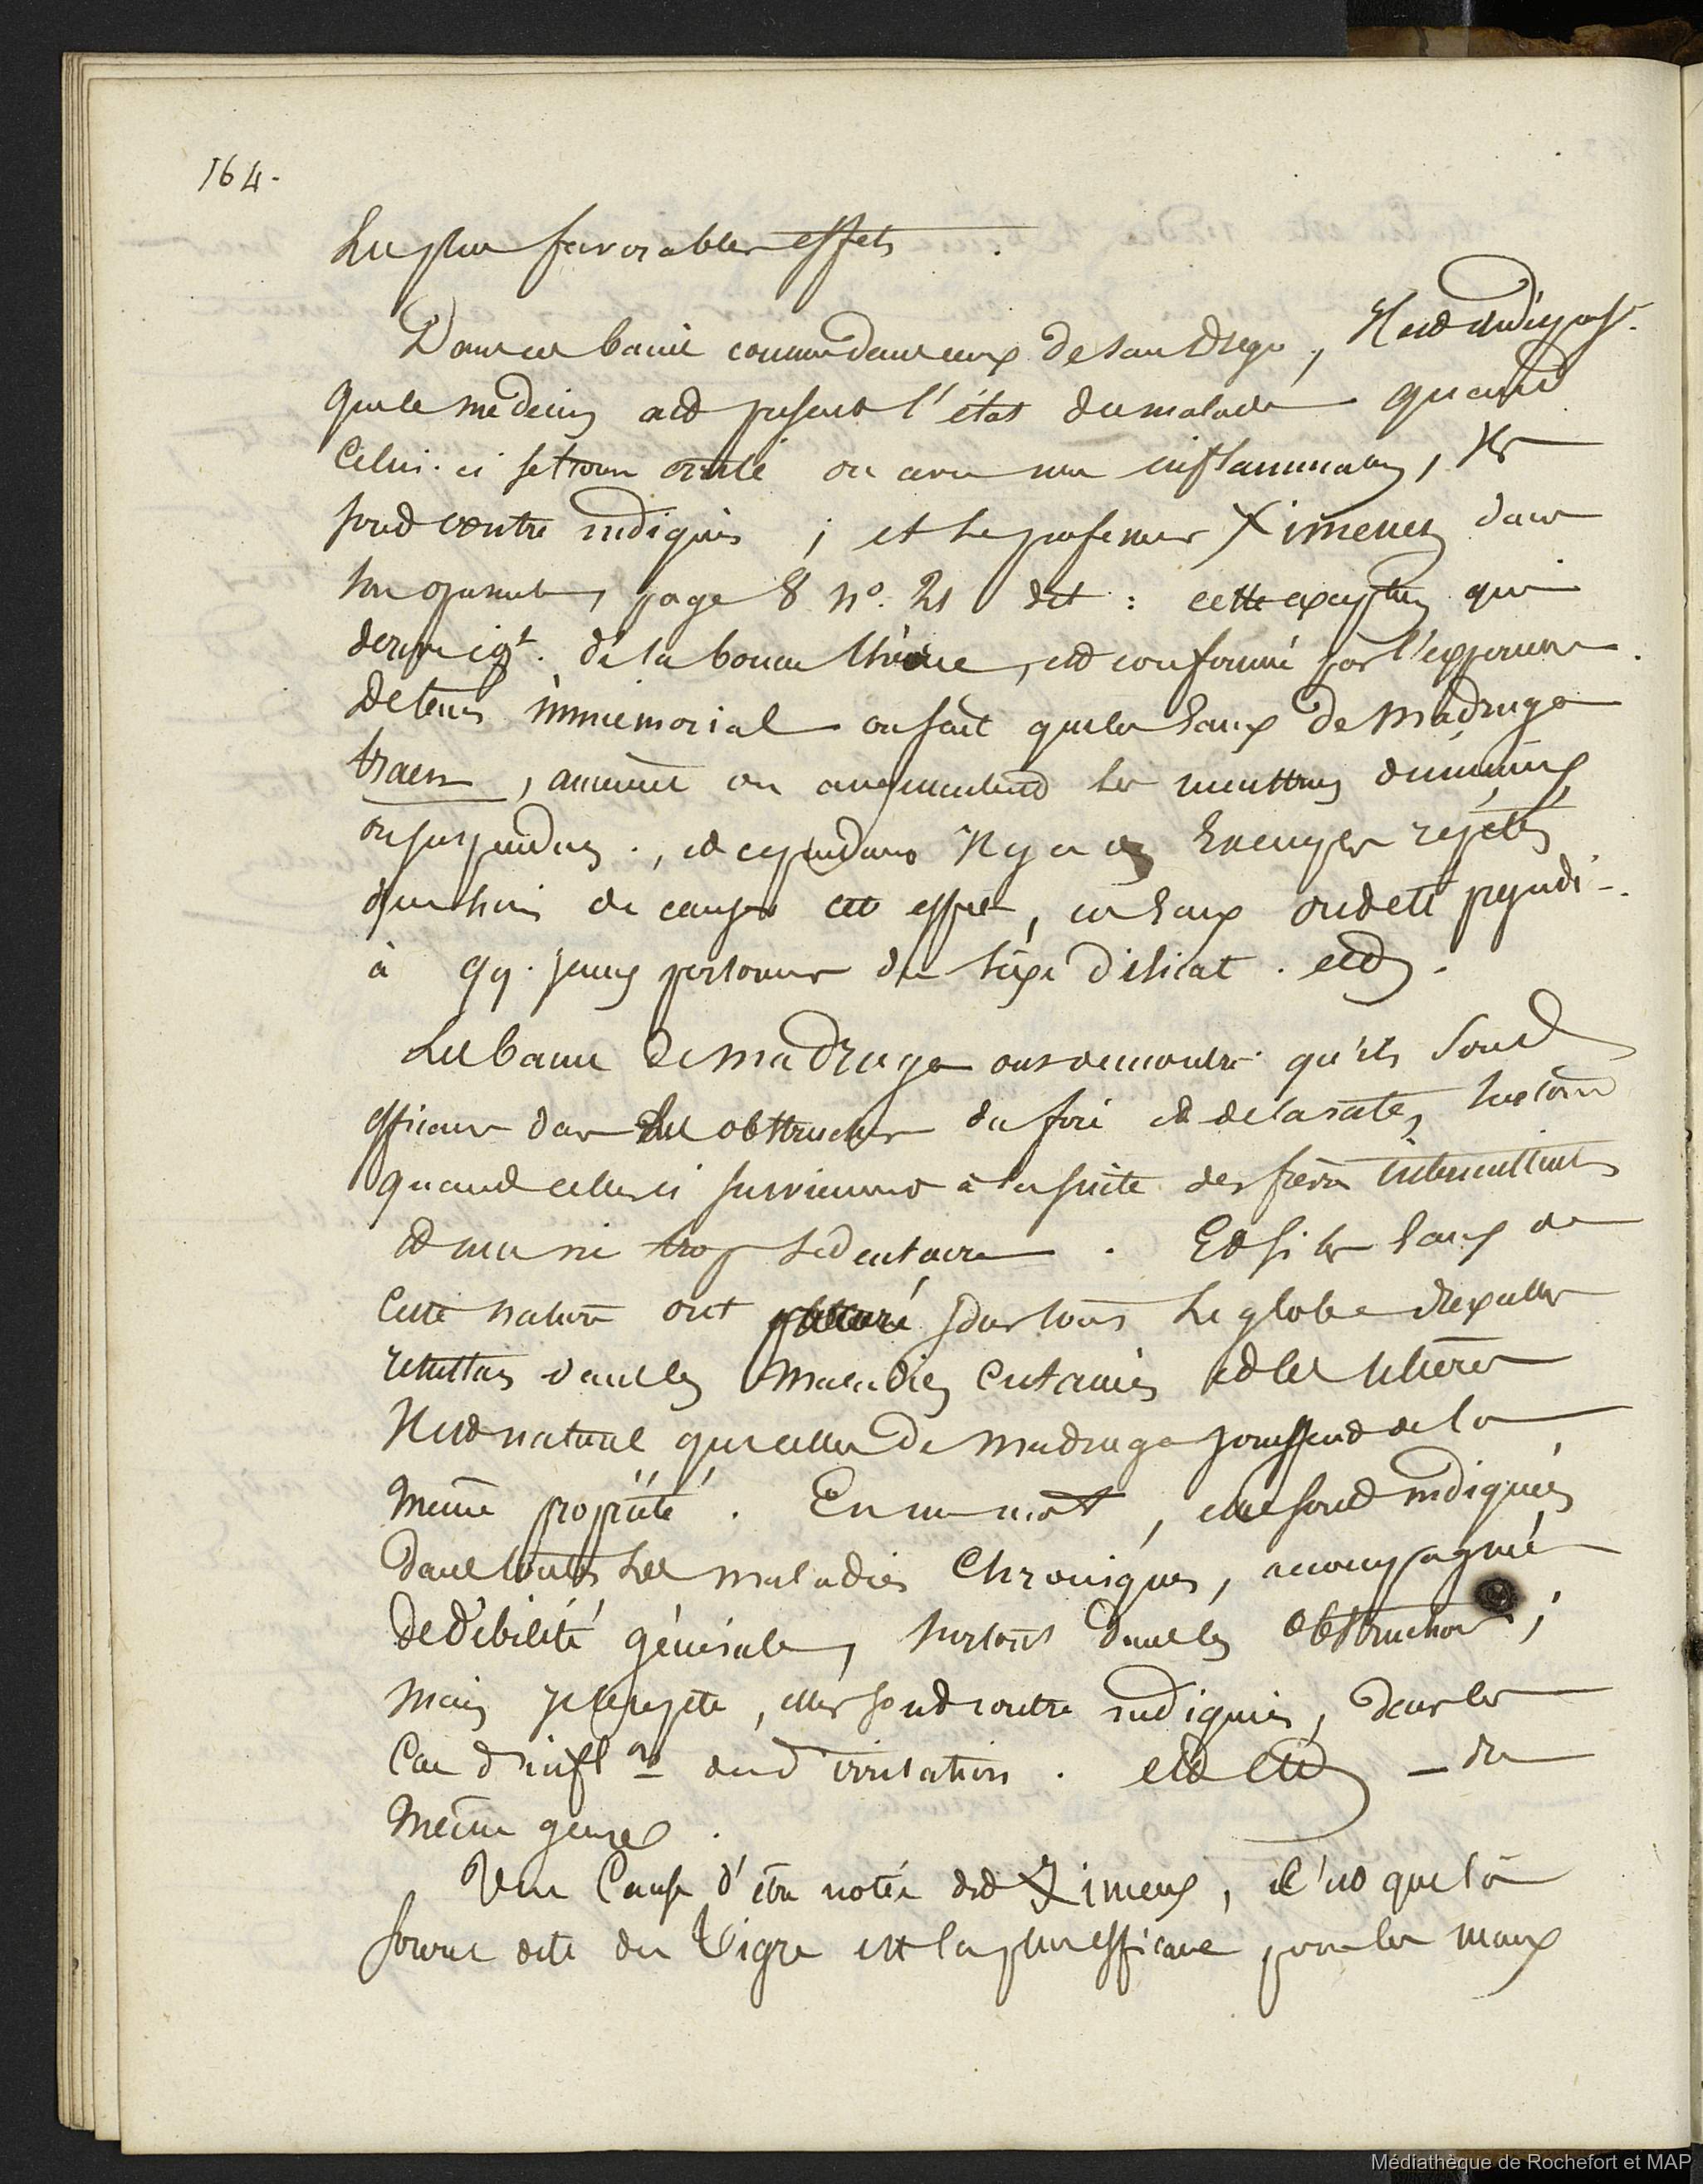 164.
Les plus favorables effets.
Dans ces bains comme dans ceux de San Diego, Il est
que le médecin ait présent l'état du malade quand
Celui-ci se trouve irrité ou avec une inflammation, Ils
sont contre indiqués ; et le professeur Ximenez dans
son opuscule, page 8 nº. 21 dit : cette exception qui
de la bonne théorie, est confirmé par l'expérience.
De tems immémorial on sait que les Eaux de Madruga
traen, amènent ou augmentent les menstrues diminuées
ou suspendues., et cependant Il y a des Exemples répétés
qu'au lieu de causer cet effet, ces Eaux ont été préjudi-
à qq. jeunes personnes du sexe délicat. etc.
Les bains de Madruga ont démontré qu'ils sont
efficaces dans les obstructions du foie et de la rate, surtout
quand celles-ci surviennent à la suite des fièvres intermittentes
et une vie trop sédentaire. Et si les Eaux de
Cette nature ont dans tous le globe d'excellens
résultats dans les Maladies Cutanées et les ulcères
Il est naturel que celles de Madruga jouissent de la
même propriété. En un mot, elles sont indiquées
dans toutes les maladies Chroniques, accompagnées
de débilité générale, surtout dans les obstructions ;
mais je le répète, elles sont contre indiquées, dans les
Cas d'infl.on ou d'irritation. etc etc — du
même genre.
Une Cause d'être notée dit Ximenez, c'est que la
source dite du Tigre est la plus efficace pour les maux
Médiathèque de Rochefort et MAP